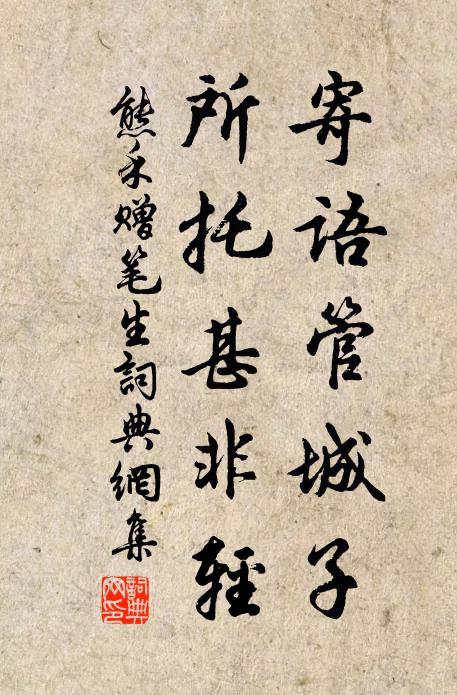 寄语管城子
所托甚非轻
熊禾赠笔生詞典網集
詞典網印